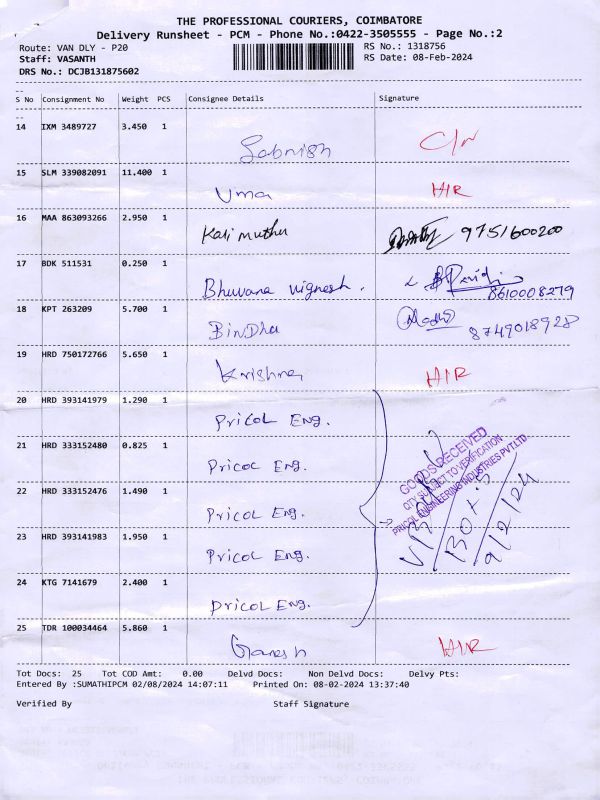 THE PROFESSIONAL COURIERS, COIMBATORE
Delivery Runsheet - PCM - Phone No.:0422-3505555 - Page No.:2
Route: VAN DLY - P20
RS No.: 1318756
Staff: VASANTH
RS Date: 08-Feb-2024
DRS No.: DCJB131875602
S No Consignment No Weight PCS Consignee Details Signature
14 IXM 3489727 3.450 1
15 SLM 339082091 11.400 1 Uma H/R
16 MAA 863093266 2.950 1 Kali muthu 9751600200
17 BDK 511531 0.250 1 Bhuvana vignesh. 8610008279
18 KPT 263209 5.700 1 BinDhu Madhu 8749018928
19 HRD 750172766 5.650 1 Krishna H/R
20 HRD 393141979 1.290 1 Pricol Eng.
21 HRD 333152480 0.825 1 Pricol Eng.
22 HRD 333152476 1.490 1 Pricol Eng.
23 HRD 393141983 1.950 1 Pricol Eng.
24 KTG 7141679 2.400 1 Pricol Eng.
GOODS RECEIVED
QTY SUBJECT TO VERIFICATION
PRICOL ENGINEERING INDUSTRIES PVT LTD
9/2/24
25 TDR 100034464 5.860 1 Ganesh H/R
Tot Docs: 25 Tot COD Amt: 0.00 Delvd Docs: Non Delvd Docs: Delvy Pts:
Entered By :SUMATHIPCM 02/08/2024 14:07:11 Printed On: 08-02-2024 13:37:40
Verified By Staff Signature